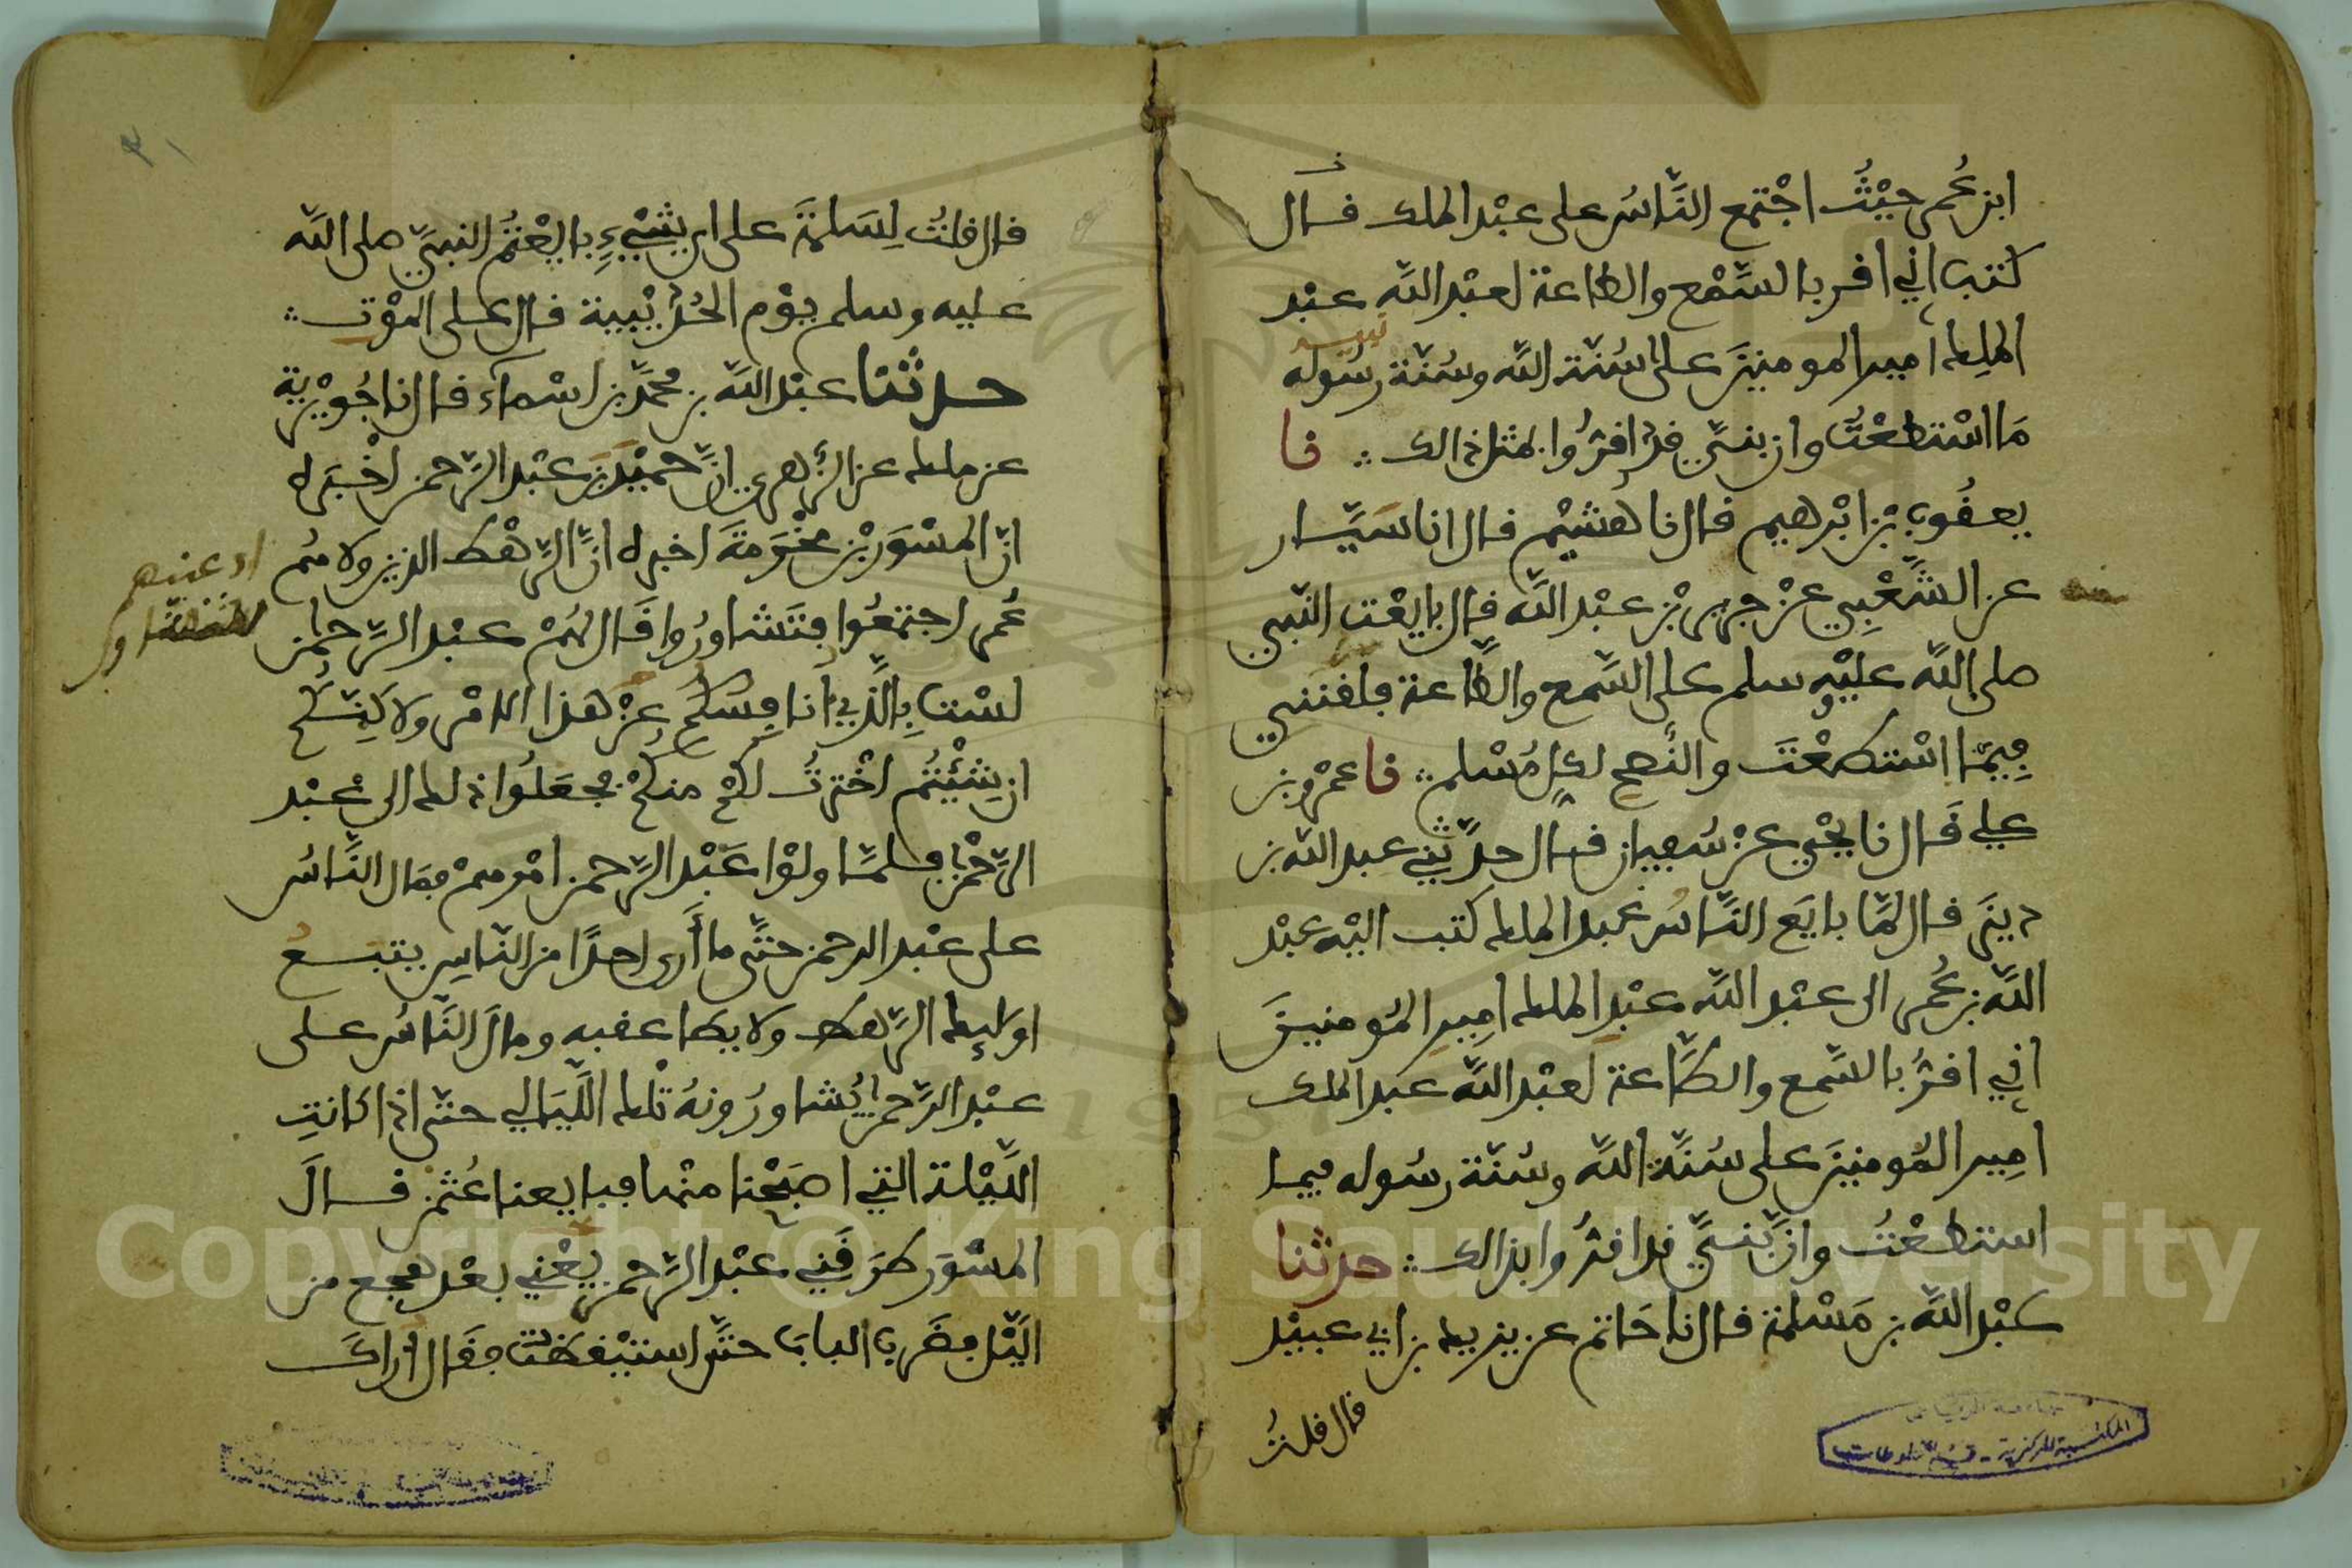 ابن عُمر حيْثُ اجْتمع النَّاسُ على عبْد الملك قال
كتب اني اقر بالسَّمْع والطاعة لعبْد اللَّه عبْد
الملك امير المومنينَ على سُنّة اللَّه وسُنّة رسُوله
مَا اسْتطعْتُ وان بنيَّ قدْ اقرُّوا بمثل ذالك ؞ نا
يعقُوب بْن ابْرهيم قال نا هُشيْم قال انا سَيَّار
عن الشَّعْبِي عنْ جرير بْن عبْد اللَّه قال بايعْت النّبي
صلى اللَّه عليْهِ وسلم على السَّمع والطَّاعة فلقنني
فِيمَا اسْتطعْتَ والنُّصح لكلِّ مُسْلم ؞ نا عمْرو بن
علي قَال نا يحْيى عنْ سُفيان قال حدَّثني عبد اللَّه بن
دينَر قال لمَّا بايَع النَّاسُ عبد الملك كتب اليْه عبْد
اللَّه بن عُمر الى عبْد اللَّه عبْدِ الملك امِيرِ المُومنينَ
اني اقرُّ بالسَّمع والطَّاعة لعبْد اللَّه عبد الملك
امِيرِ المُومنينَ على سُنَّة اللَّه وسُنّة رسُوله فيما
استطعْتُ وانّ بَنيَّ قد اقرُّوا بذالك ؞ حدثنا
عبْد اللَّه بن مَسْلمة قال نا حَاتم عن يزيد بن ابي عبيْد
قال قلتُ
قال قلتُ لِسَلمةَ على اي شيْءٍ بايعْتُمُ النبيَّ صلى اللَّه
عليه وسلم يوْم الحُدَيْبية قال على الموْت ؞
حدثنا عبْد اللَّه بن محمَّد بن اسْماء قال نا جُويْرية
عن ملك عن الزُّهري انَّ حميْدَ بن عبْد الرَّحمن اخْبَره
انّ المسْوَر بْن مخْرَمةَ اخبره انَّ الرَّهْط الذين ولاهُم
عُمر اجتمعُوا فتَشاورُوا قَال لهُمْ عبْد الرَّحمن
لسْت بِالَّذِي أنافسكُم عنْ هذا الامْر ولاكِنّكُم
ان شِئْتُمُ اخْترْتُ لكُم منكُمْ فجعَلُوا ذلك الى عبْد
الرَّحْمن فلمّا ولوْا عَبْد الرَّحمن امْرهمْ فمَال النَّاسُ
على عبْد الرحمن حتَّى ما أَرى احدًا من النّاسِ يتبعُ
اولإيك الرَّهط ولا يطا عقبه ومالَ النَّاسُ على
عبْد الرَّحمن يُشاورُونهُ تلْك اللَّيَالي حتّى اذا كانتِ
اللَّيْلة التي اصبَحْنا منْها فبايعنا عُثمن قالَ
المسْوَر طرَقَني عبْد الرَّحمن يعْني بعْد هجع من
اليْل فضَرب البابَ حتَّى استيْقظْت فقَال أراك